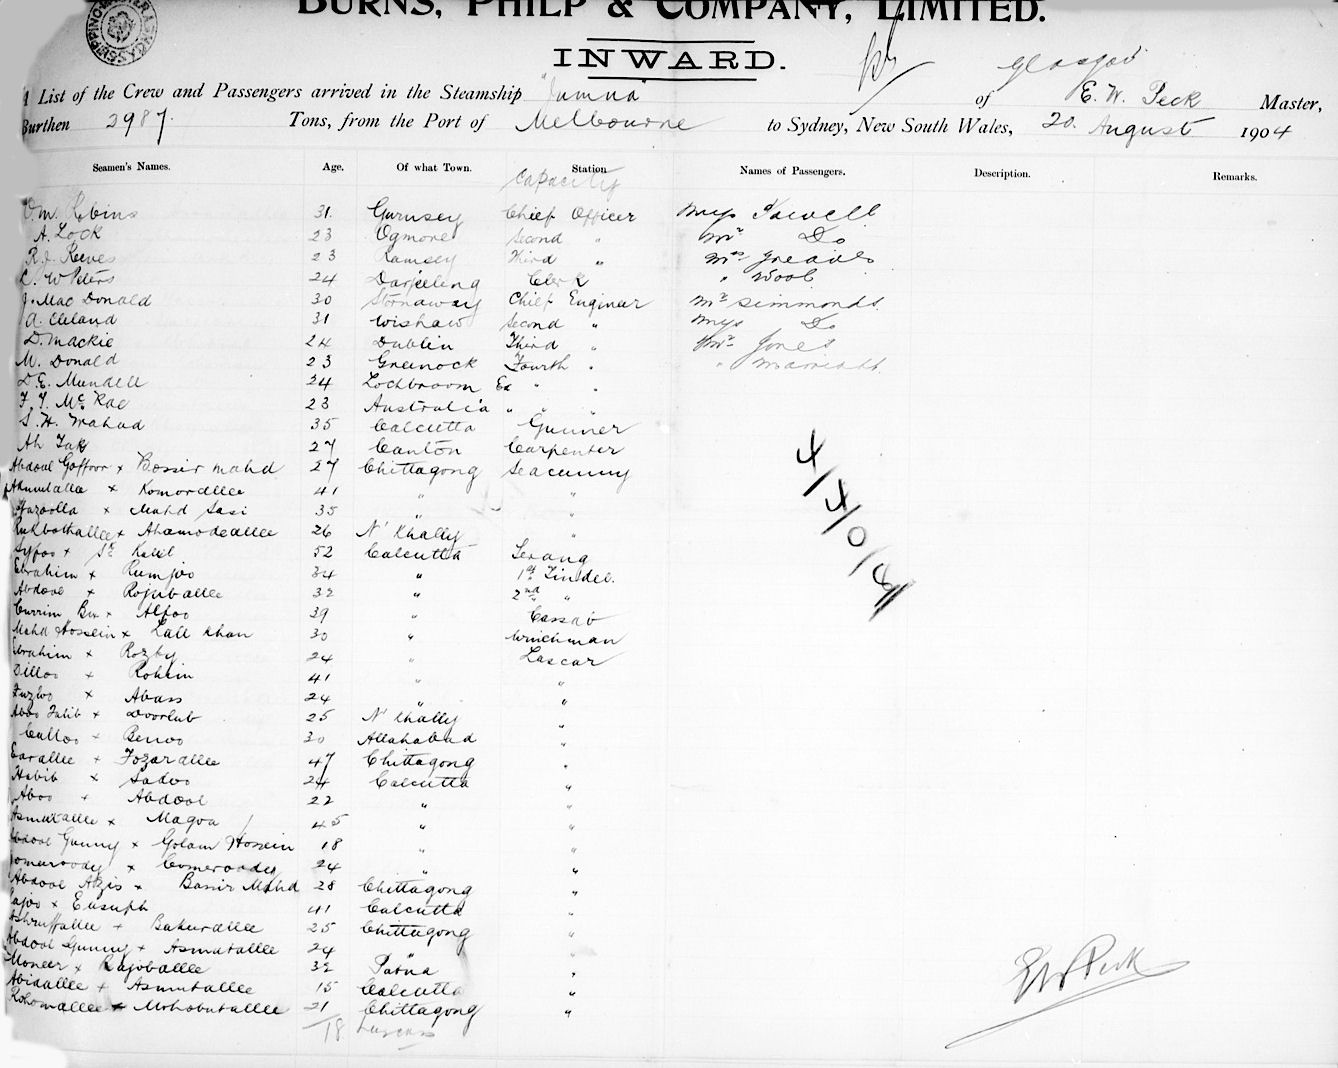 BURNS, PHILP & COMPANY, LIMITED.
INWARD.
Glasgow
A List of the Crew and Passengers arrived in the Steamship "Jumna" of E. W. Peck Master,
Burthen 2987. Tons, from the Port of Melbourne to Sydney, New South Wales, 20. August 1904
Seamen's Names. Age. Of what Town. Station Names of Passengers. Description. Remarks.
Capacity
O. M. Robins 31. Gurnsey Chief Officer
A. Lock 23 Ogmore Second " Do
R. J. Reeves 23 Ramsey Third " Mrs Greaves
C. W Peters 24 Darjeeling Clerk " Wood
J. Mac Donald 30 Stornaway Chief Enginer Mr Simmonds.
A. Cleland 31 Wishaw Second " Do
D. Mackie 24 Dublin Third " Jones
M. Donald 23 Greenock Fourth " "
D. E. Mundell 24 Lochbroom Ex " "
F. J. McRae 23 Australia " " "
S. H. Mahud 35 Calcutta Gunner
Ah Tak 27 Canton Carpenter
Abdool Goffoor x Bossir Mahd 27 Chittagong Seacunny
x Komordllee 41 " "
x Mahd Sasi 35 " "
x Ahamodeallee 26 N' Khally "
52 Calcutta Serang
Ebrahim x Rumjoo 34 " 1st Tindel.
Abdool x Rojuballee 32 " 2nd "
Currim Bux x Alfoo 39 " Cassab
Mahd Hossein x Lall Khan 30 " Winchman
Ebrahim x Rozby 24 " Lascar
Dilloo x Rohhin 41 " "
Fuzloo x Abass 24 " "
Aboo Talib x Doorlub 25 N' Khally "
Culloo x Benoo 30 Allahabad "
Earallee x Fozarallee 47 Chittagong "
Habib x Sadoo 24 Calcutta "
Aboo x Abdool 22 " "
Asmutallee x Magoa 45 " "
Abdool Gunny x Golam Hossein 18 " "
x Comeroody 24 " "
Abdool Azis x Bassir Mahd 28 Chittagong "
x Eusuph 41 Calcutta "
Ashruffallee x Bakurallee 25 Chittagong "
Abdool Gunny x Asmutallee 24 " "
Moneer x Rajoballee 32 Patna "
Abidallee x Asmutallee 15 Calcutta "
Rohomallee x Mohobutallee 21 Chittagong "
18 Lascars
4/4/0/8/
EW Peck